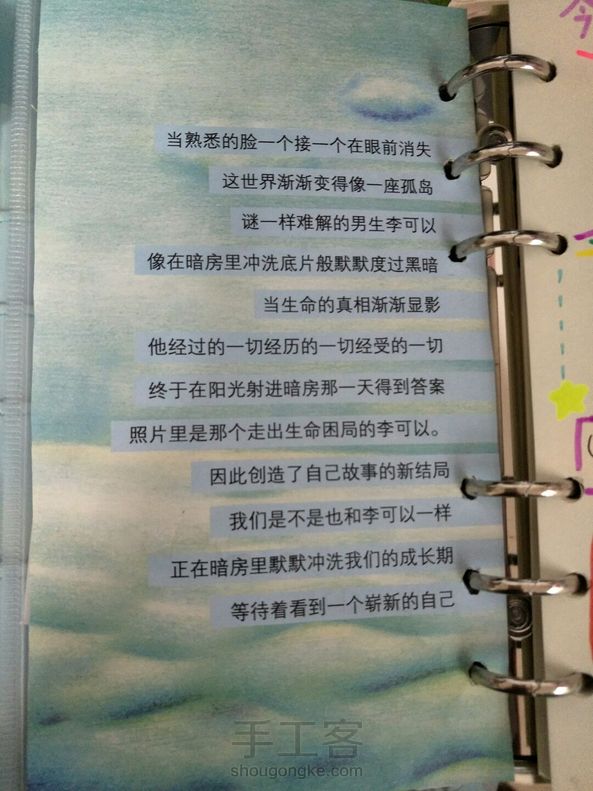 当熟悉的脸一个接一个在眼前消失
这世界渐渐变得像一座孤岛
谜一样难解的男生李可以
像在暗房里冲洗底片般默默度过黑暗
当生命的真相渐渐显影
他经过的一切经历的一切经受的一切
终于在阳光射进暗房那一天得到答案
照片里是那个走出生命困局的李可以。
因此创造了自己故事的新结局
我们是不是也和李可以一样
正在暗房里默默冲洗我们的成长期
等待着看到一个崭新的自己
手工客
shougongke.com